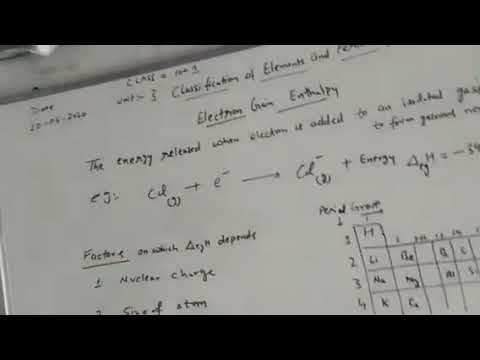 CLASS = 10+1
Date
20-05-2020
Unit:- 3 Classification of Elements and
Electron Gain Enthalpy
The energy released when electron is added to an isolated
to form gaseous
eg: Cl(g) + e⁻ → Cl⁻(g) + Energy ΔegH = -34
Factors on which ΔegH depends
1 Nuclear charge
2 Size of atom
Period Group
1
1 H
2 Li Be B C
3 Na Mg Al Si
4 K Ca